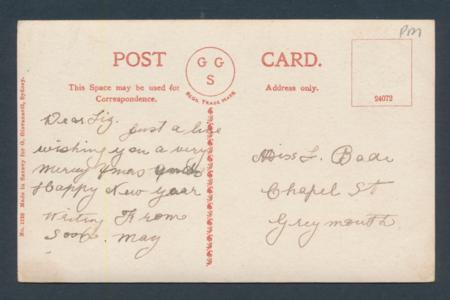 Pm
POST CARD.
G G
S
REGD. TRADE MARK
This Space may be used for
Correspondence.
Address only.
24072
No. 1120 Made in Saxony for G. Giovanardi, Sydney.
Dear Liz,
Just a line
wishing you a very
Merry Xmas and
Happy New year
Writing From
Soon. May
Miss L. Bade
Chapel St
Greymouth